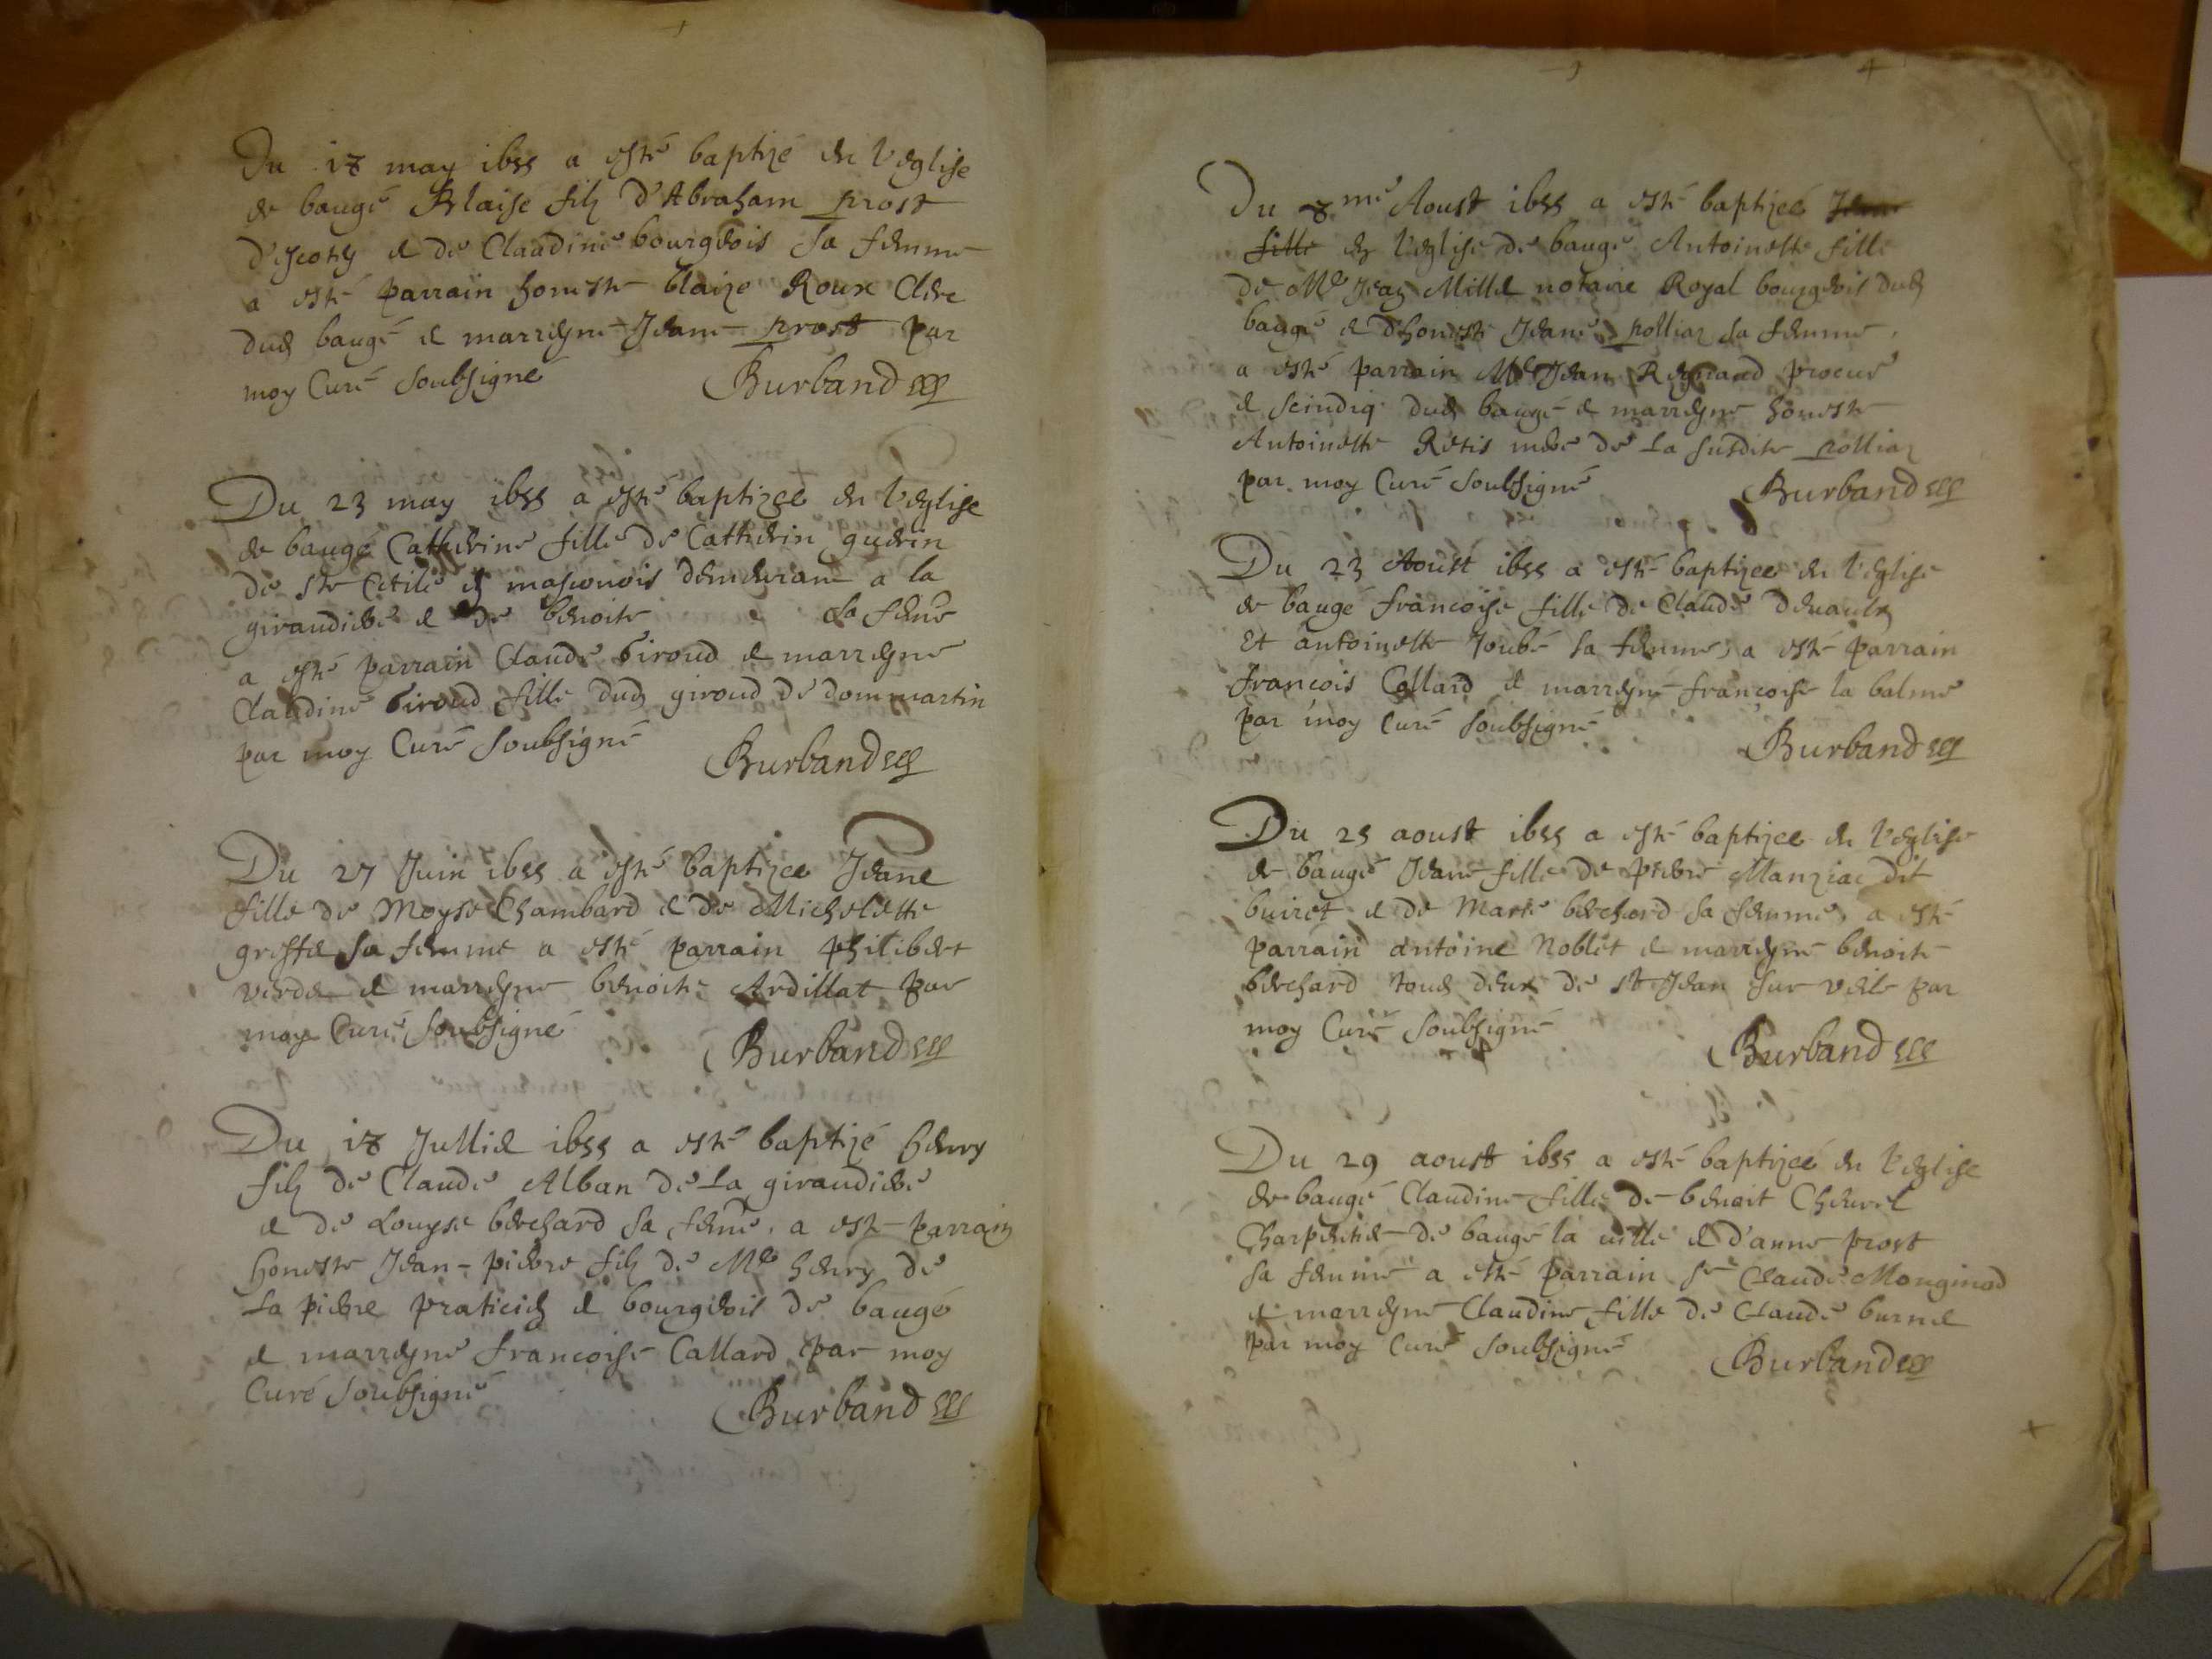 Du 18 may 1655 a esté baptizé en l'eglise
de baugé Blaise filz d'Abraham prost
d'escotz et de Claudine bourgeois sa femme
a esté parrain honeste blaize Roux Clerc
dud baugé et marreyne Jeane prost par
moy Curé soubsigné Burband
Du 23 may 1655 a esté baptizee en l'eglise
de baugé Catherine fille de Catherin guerin
de ste Cecile en masconois demeurant a la
giraudiere et de benoite sa feme
a esté parrain Claude Giroud et marreyne
Claudine Giroud fille dud giroud de dommartin
par moy Curé soubsigné Burband
Du 27 Juin 1655 a esté baptizee Jeane
fille de Moyse Chambard et de Michelette
greffet sa femme a esté parrain philibert
verdet et marreyne benoite Ardillat par
moy Curé soubsigné Burband
Du 18 Jullet 1655 a esté baptizé henry
filz de Claude Alban de la giraudiere
et de Louyse berchard sa feme. a esté parrain
honeste Jean-pierre filz de Me henry de
la pierre praticien et bourgeois de baugé
et marreyne francoise Callard par moy
Curé soubsigné Burband
Du 8me Aoust 1655 a esté baptizee Jeane
fille en l'eglise de baugé Antoinette fille
de Me Jean Millet notaire Royal bourgeois dud
baugé et d'honeste Jeane polliaz sa femme.
a esté parrain Me Jean Regnaud procur
et scindiq dud baugé et marreyne honeste
Antoinette Retis mere de la susdite polliaz
par moy Curé soubsigné Burband
Du 23 Aoust 1655 a esté baptizee en l'eglise
de baugé francoise fille de Claude
Et antoinette Joubé sa femme, a esté parrain
francois Callard et marreyne françoise la balme
par moy Curé soubsigné Burband
Du 25 aoust 1655 a esté baptizee en l'eglise
de baugé Jeane fille de pierre Manziac dit
buiret et de Marie berchard sa femme, a esté
parrain antoine Noblet et marreyne benoite
berchard tous deux de st Jean sur veile par
moy Curé soubsigné Burband
Du 29 aoust 1655 a esté baptizeé en l'eglise
de baugé Claudine fille de benoit Chevrel
Charpentier de baugé la ville et d'anne prost
sa femme a esté parrain sr Claude Monginod
et marreyne Claudine fille de Claude burnet
par moy Curé soubsigné Burband